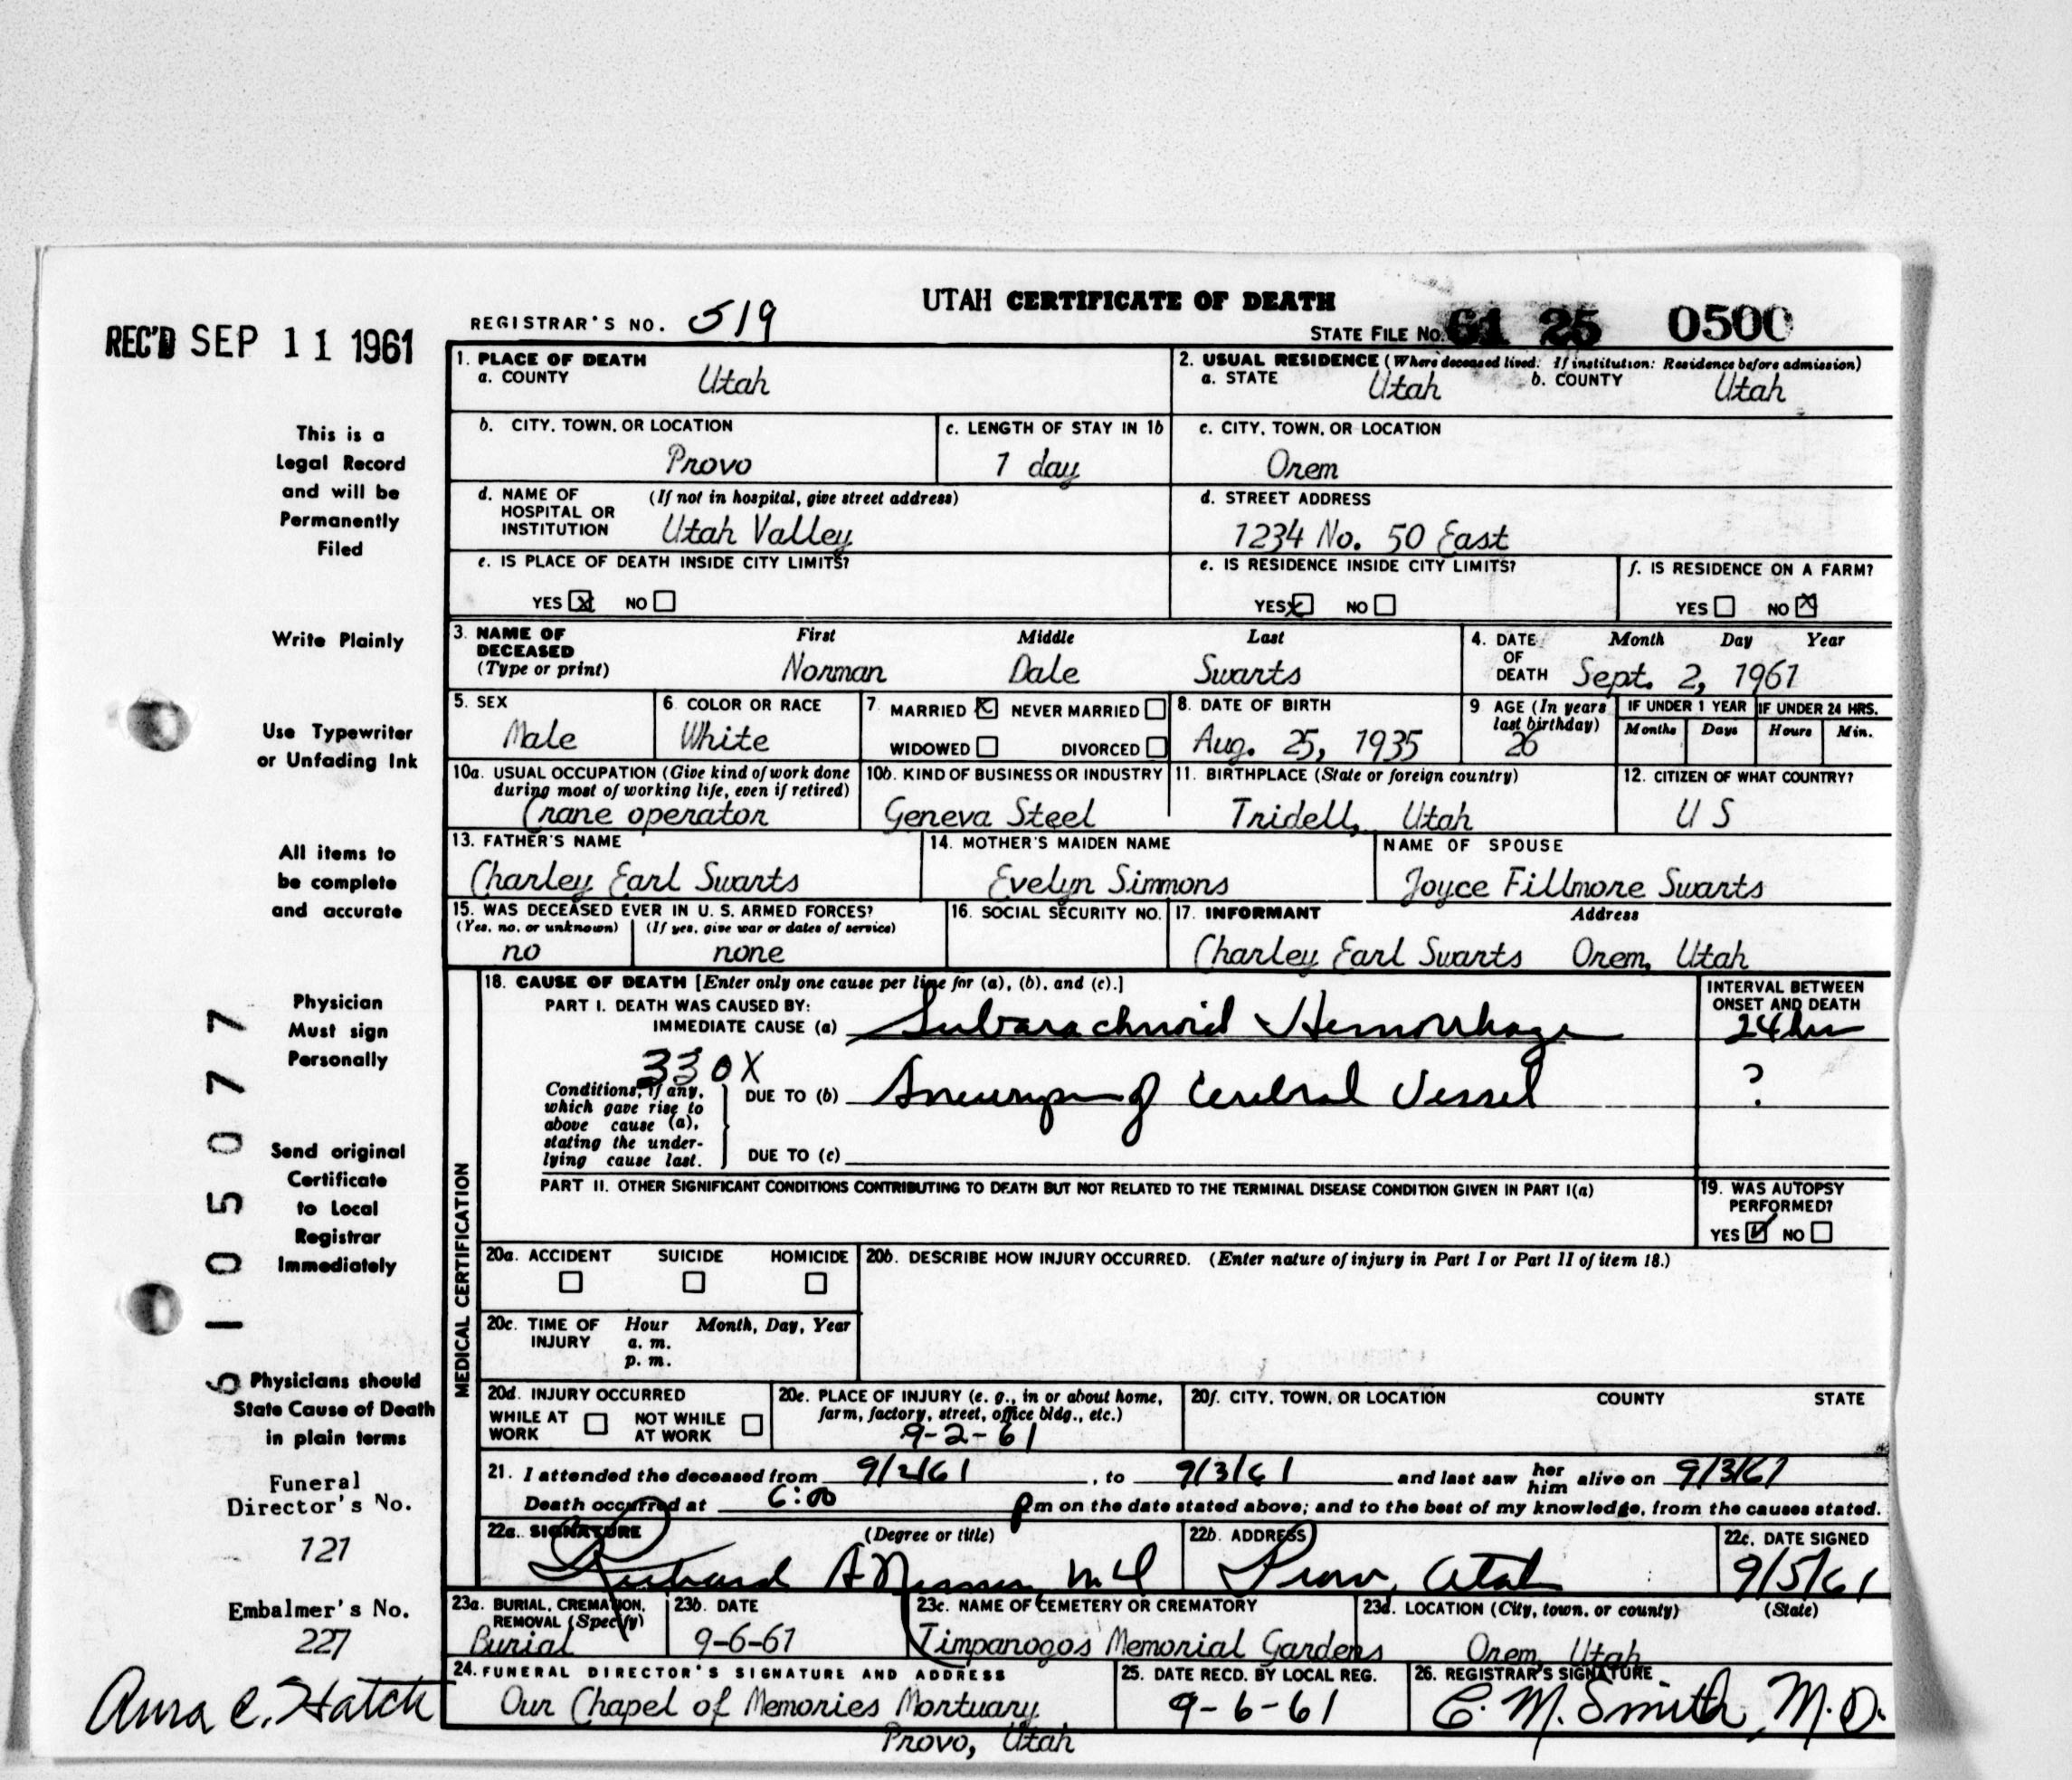 UTAH CERTIFICATE OF DEATH
REC'D SEP 11 1961
REGISTRAR'S NO. 519
STATE FILE No. 61 25 0500
1. PLACE OF DEATH
a. COUNTY Utah
2. USUAL RESIDENCE (Where deceased lived. If institution: Residence before admission)
a. STATE Utah b. COUNTY Utah
b. CITY, TOWN, OR LOCATION
Provo
c. LENGTH OF STAY IN 1b
1 day
c. CITY, TOWN, OR LOCATION
Orem
d. NAME OF HOSPITAL OR INSTITUTION (If not in hospital, give street address)
Utah Valley
d. STREET ADDRESS
1234 No. 50 East
e. IS PLACE OF DEATH INSIDE CITY LIMITS?
YES X NO
e. IS RESIDENCE INSIDE CITY LIMITS?
YES X NO
f. IS RESIDENCE ON A FARM?
YES NO X
3. NAME OF DECEASED (Type or print)
First Middle Last
Norman Dale Swarts
4. DATE OF DEATH Month Day Year
Sept. 2, 1961
5. SEX
Male
6. COLOR OR RACE
White
7. MARRIED X NEVER MARRIED
WIDOWED DIVORCED
8. DATE OF BIRTH
Aug. 25, 1935
9 AGE (In years last birthday)
26
IF UNDER 1 YEAR IF UNDER 24 HRS.
Months Days Hours Min.
10a. USUAL OCCUPATION (Give kind of work done during most of working life, even if retired)
Crane operator
10b. KIND OF BUSINESS OR INDUSTRY
Geneva Steel
11. BIRTHPLACE (State or foreign country)
Tridell, Utah
12. CITIZEN OF WHAT COUNTRY?
U S
13. FATHER'S NAME
Charley Earl Swarts
14. MOTHER'S MAIDEN NAME
Evelyn Simmons
NAME OF SPOUSE
Joyce Fillmore Swarts
15. WAS DECEASED EVER IN U. S. ARMED FORCES?
(Yes, no, or unknown) (If yes, give war or dates of service)
no none
16. SOCIAL SECURITY NO.
17. INFORMANT Address
Charley Earl Swarts Orem, Utah
MEDICAL CERTIFICATION
18. CAUSE OF DEATH [Enter only one cause per line for (a), (b), and (c).]
PART I. DEATH WAS CAUSED BY:
IMMEDIATE CAUSE (a) Subarachnoid Hemorrhage
INTERVAL BETWEEN ONSET AND DEATH
24 hrs
330X
Conditions, if any, which gave rise to above cause (a), stating the underlying cause last.
DUE TO (b) Aneurysm of Cerebral Vessel
?
DUE TO (c)
PART II. OTHER SIGNIFICANT CONDITIONS CONTRIBUTING TO DEATH BUT NOT RELATED TO THE TERMINAL DISEASE CONDITION GIVEN IN PART I(a)
19. WAS AUTOPSY PERFORMED?
YES ✓ NO
20a. ACCIDENT SUICIDE HOMICIDE
20b. DESCRIBE HOW INJURY OCCURRED. (Enter nature of injury in Part I or Part II of item 18.)
20c. TIME OF INJURY Hour Month, Day, Year
a. m.
p. m.
20d. INJURY OCCURRED
WHILE AT WORK NOT WHILE AT WORK
20e. PLACE OF INJURY (e. g., in or about home, farm, factory, street, office bldg., etc.)
9-2-61
20f. CITY, TOWN, OR LOCATION COUNTY STATE
21. I attended the deceased from 9/2/61, to 9/3/61 and last saw her him alive on 9/3/61
Death occurred at 6:00 Pm on the date stated above; and to the best of my knowledge, from the causes stated.
22a. SIGNATURE (Degree or title)
Richard A MD
22b. ADDRESS
Provo, Utah
22c. DATE SIGNED
9/5/61
23a. BURIAL, CREMATION, REMOVAL (Specify)
Burial
23b. DATE
9-6-61
23c. NAME OF CEMETERY OR CREMATORY
Timpanogos Memorial Gardens
23d. LOCATION (City, town, or county) (State)
Orem, Utah
24. FUNERAL DIRECTOR'S SIGNATURE AND ADDRESS
Our Chapel of Memories Mortuary
Provo, Utah
25. DATE RECD. BY LOCAL REG.
9-6-61
26. REGISTRAR'S SIGNATURE
C. M. Smith, M.D.
This is a
Legal Record
and will be
Permanently
Filed
Write Plainly
Use Typewriter
or Unfading Ink
All items to
be complete
and accurate
Physician
Must sign
Personally
Send original
Certificate
to Local
Registrar
Immediately
Physicians should
State Cause of Death
in plain terms
6105077
Funeral
Director's No.
121
Embalmer's No.
227
C. Hatch